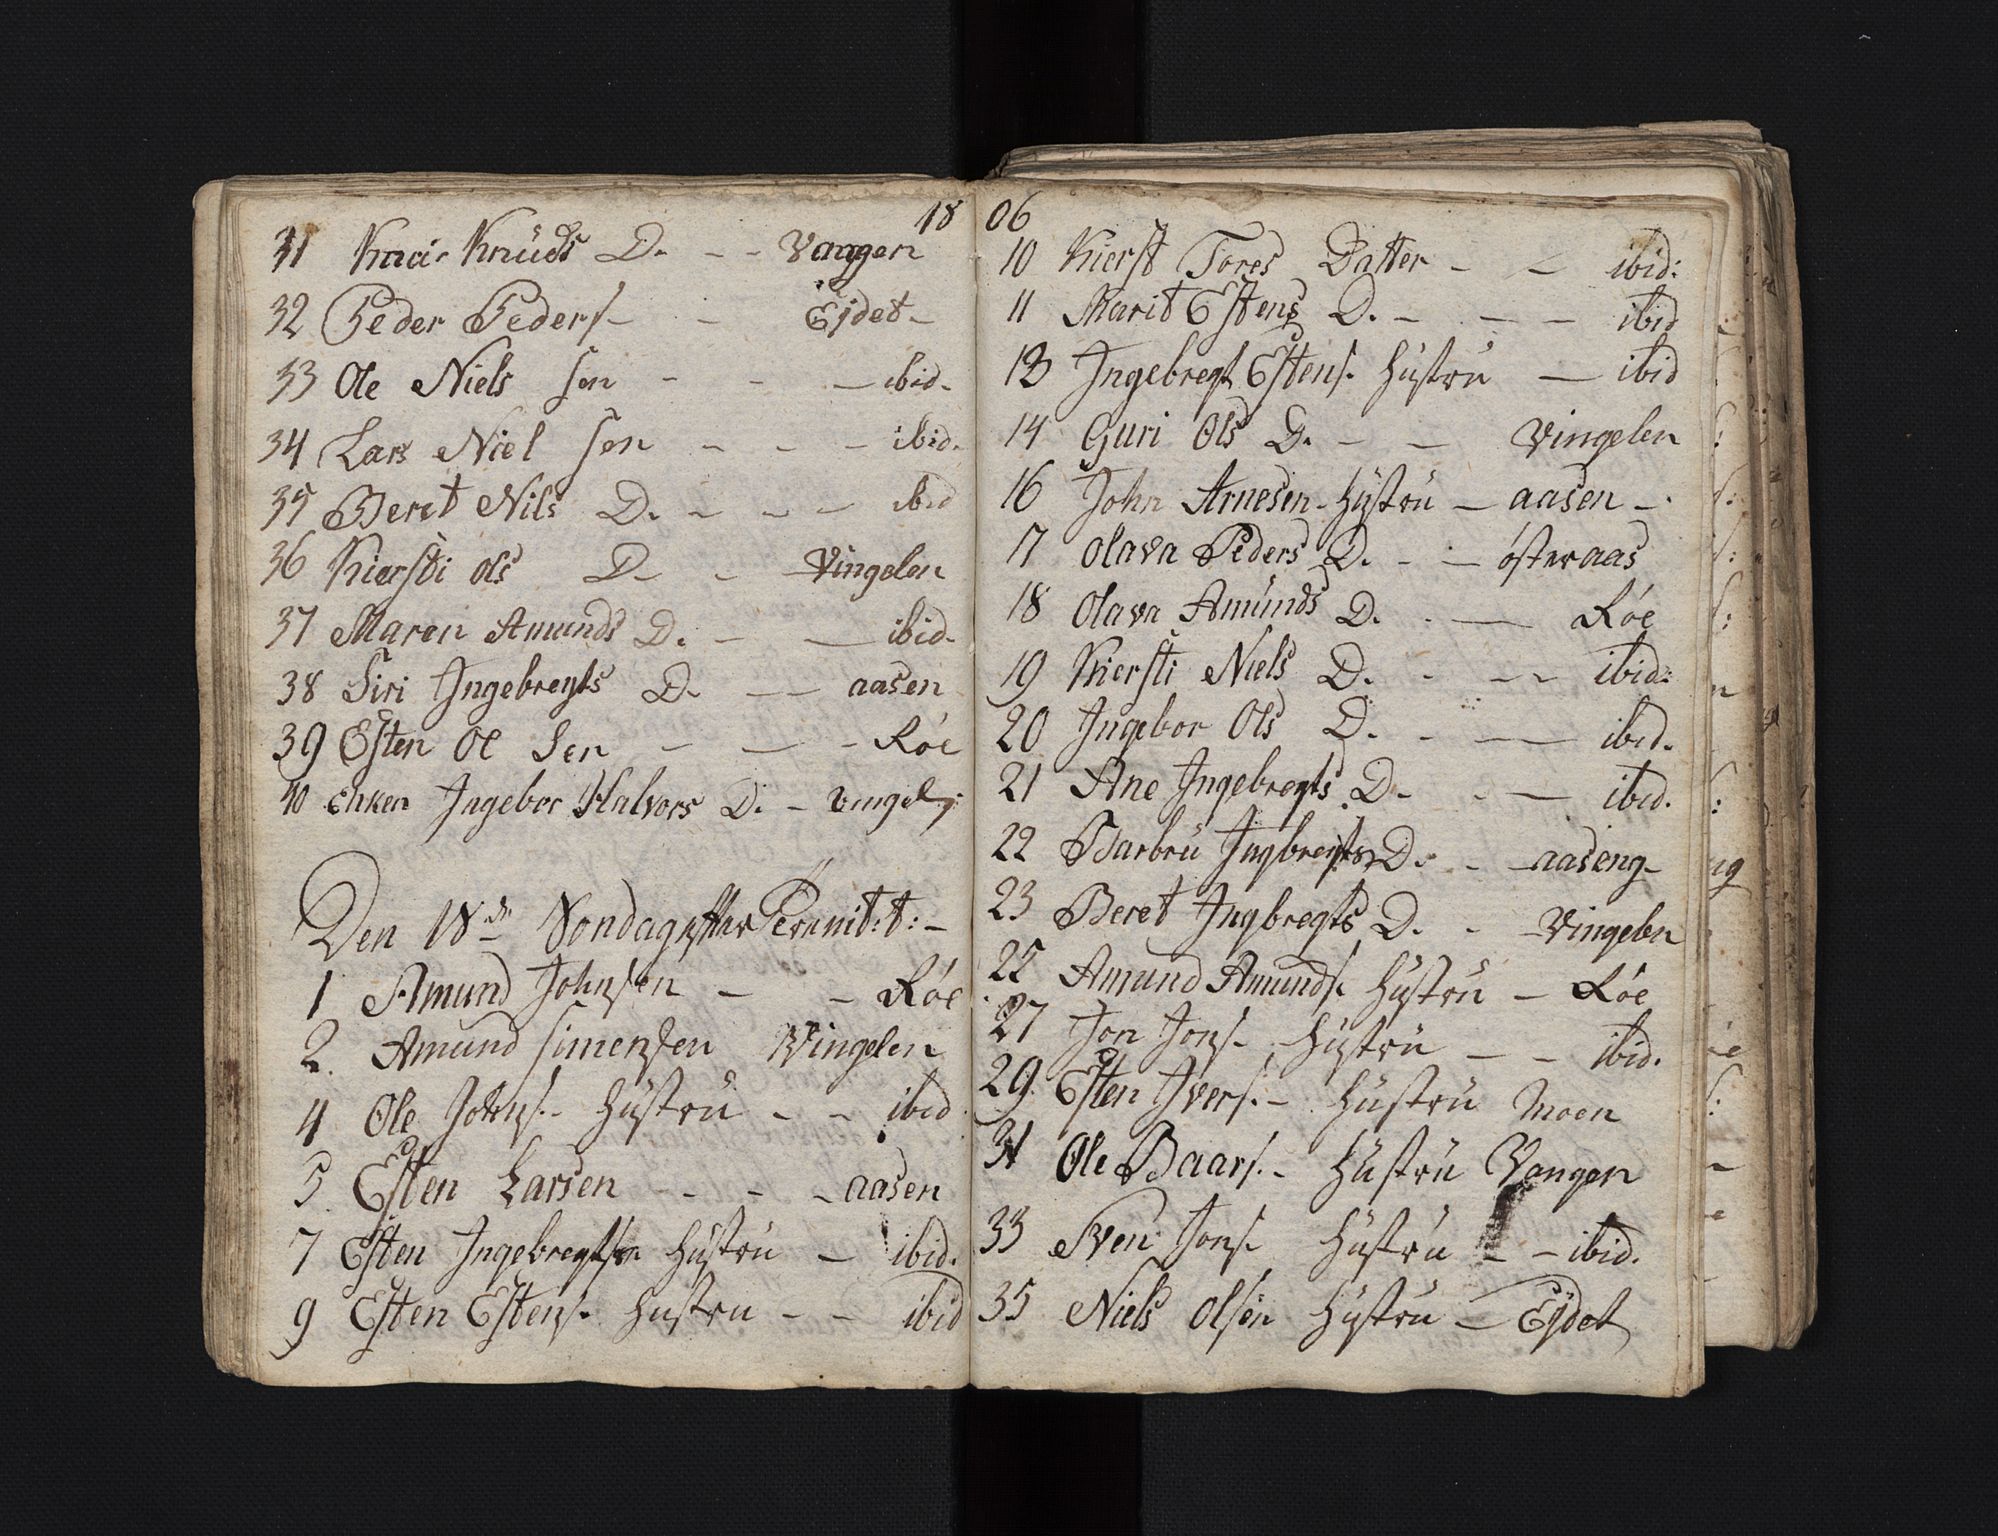 18
31 Knüds D. - - Vangen
32 Peder Peders. - - Ejdet -
33 Ole Niels sen - - - ibid.
34 Lars Niel sen - - - ibid.
35 Beret Nils D. - - - ibid
36 Kiersti Ols D. - - Vingelen
37 Maren Amunds D. - - ibid.
38 Siri Ingebregts D. - - aasen
39 Esten Ol Sen - - - Røe
40 Enken Ingebor Halvors D. - vingel:
Den 18de Søndag efter Trenit:t: -
1 Amund Johnsen - - Røe
2. Amund Simensen Vingelen
4 Ole Johns. - Hüstrü - - ibid
5 Esten Larsen - - - aasen
7 Esten Ingebregtsen Hüstrü - ibid.
9 Esten Estens. Hustru - - ibid
06
10 Kierst Tores Datter - - ibid:
11 Marit Estens D. - - - ibid
13 Ingebregt Estens. Hüstrü - ibid
14 Guri Ols D. - - Vingelen
16 John Arnesen - Hüstrü - aasen -
17 Olava Peders D. - - østeraas
18 Olava Amünds D. - - Røe
19 Kiersti Niels D. - - - ibid:
20 Ingebor Ols D. - - - ibid.
21 Ane Ingebregts D - - - ibid.
22 Barbru Ingbregts D. - - aaseng -
23 Beret Ingbregts D. - Vingelen
25 Amund Amunds. Hüstrü - Røe
27 Jon Jons. Hüstrü - - ibid.
29. Esten Ivers. - Hustrü Moen
31 Ole Baars. - Hüstrü Vangen
33 Sven Jons. Hüstrü - - ibid.
35 Niels Olsen Hüstrü - Ejdet